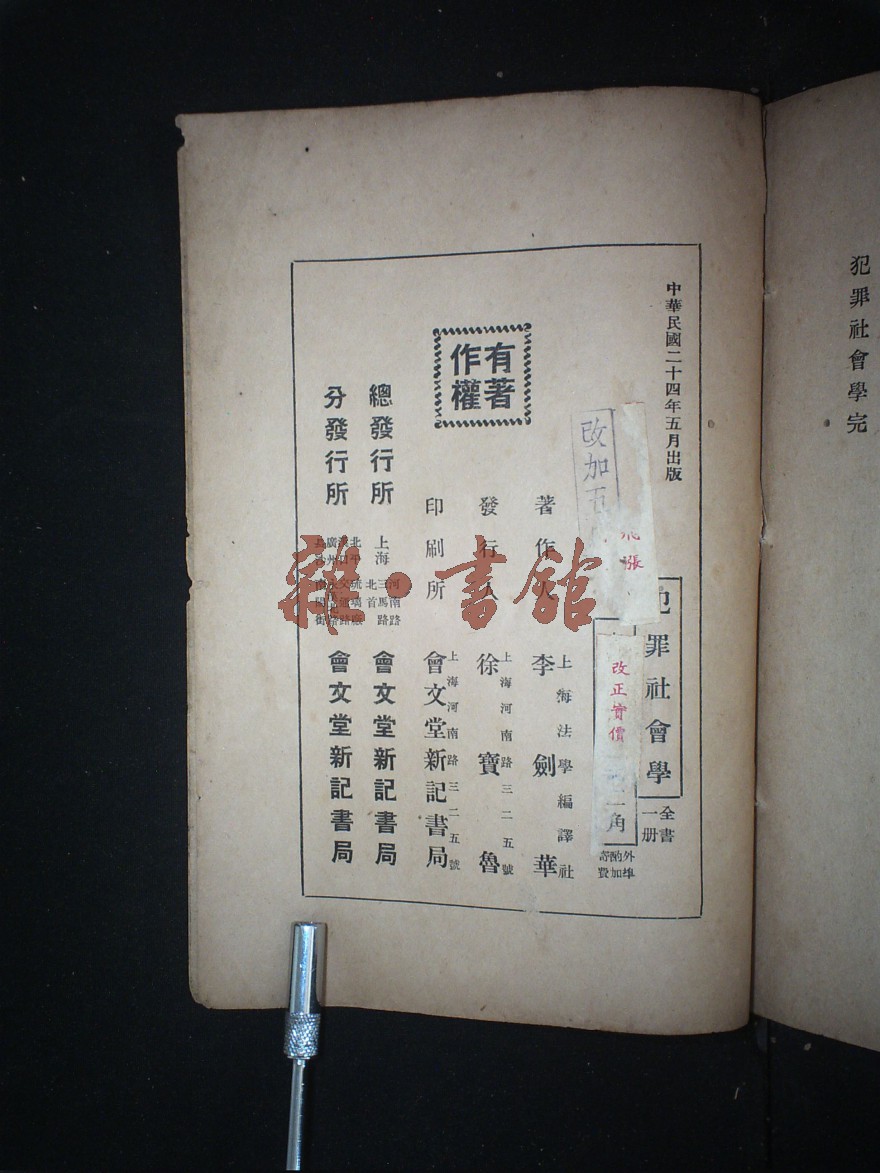 犯罪社會學完
中華民國二十四年五月出版
犯罪社會學
全書
一册
外埠
酌加
寄費
二角
飛漲
改正實價
改加五
著作人
上海法學編譯社
李劍華
發行人
上海河南路三二五號
徐寶魯
印刷所
上海河南路三二五號
會文堂新記書局
有著
作權
總發行所
上海
河南路
三馬路
北首
會文堂新記書局
分發行所
會文堂新記書局
雜·書館